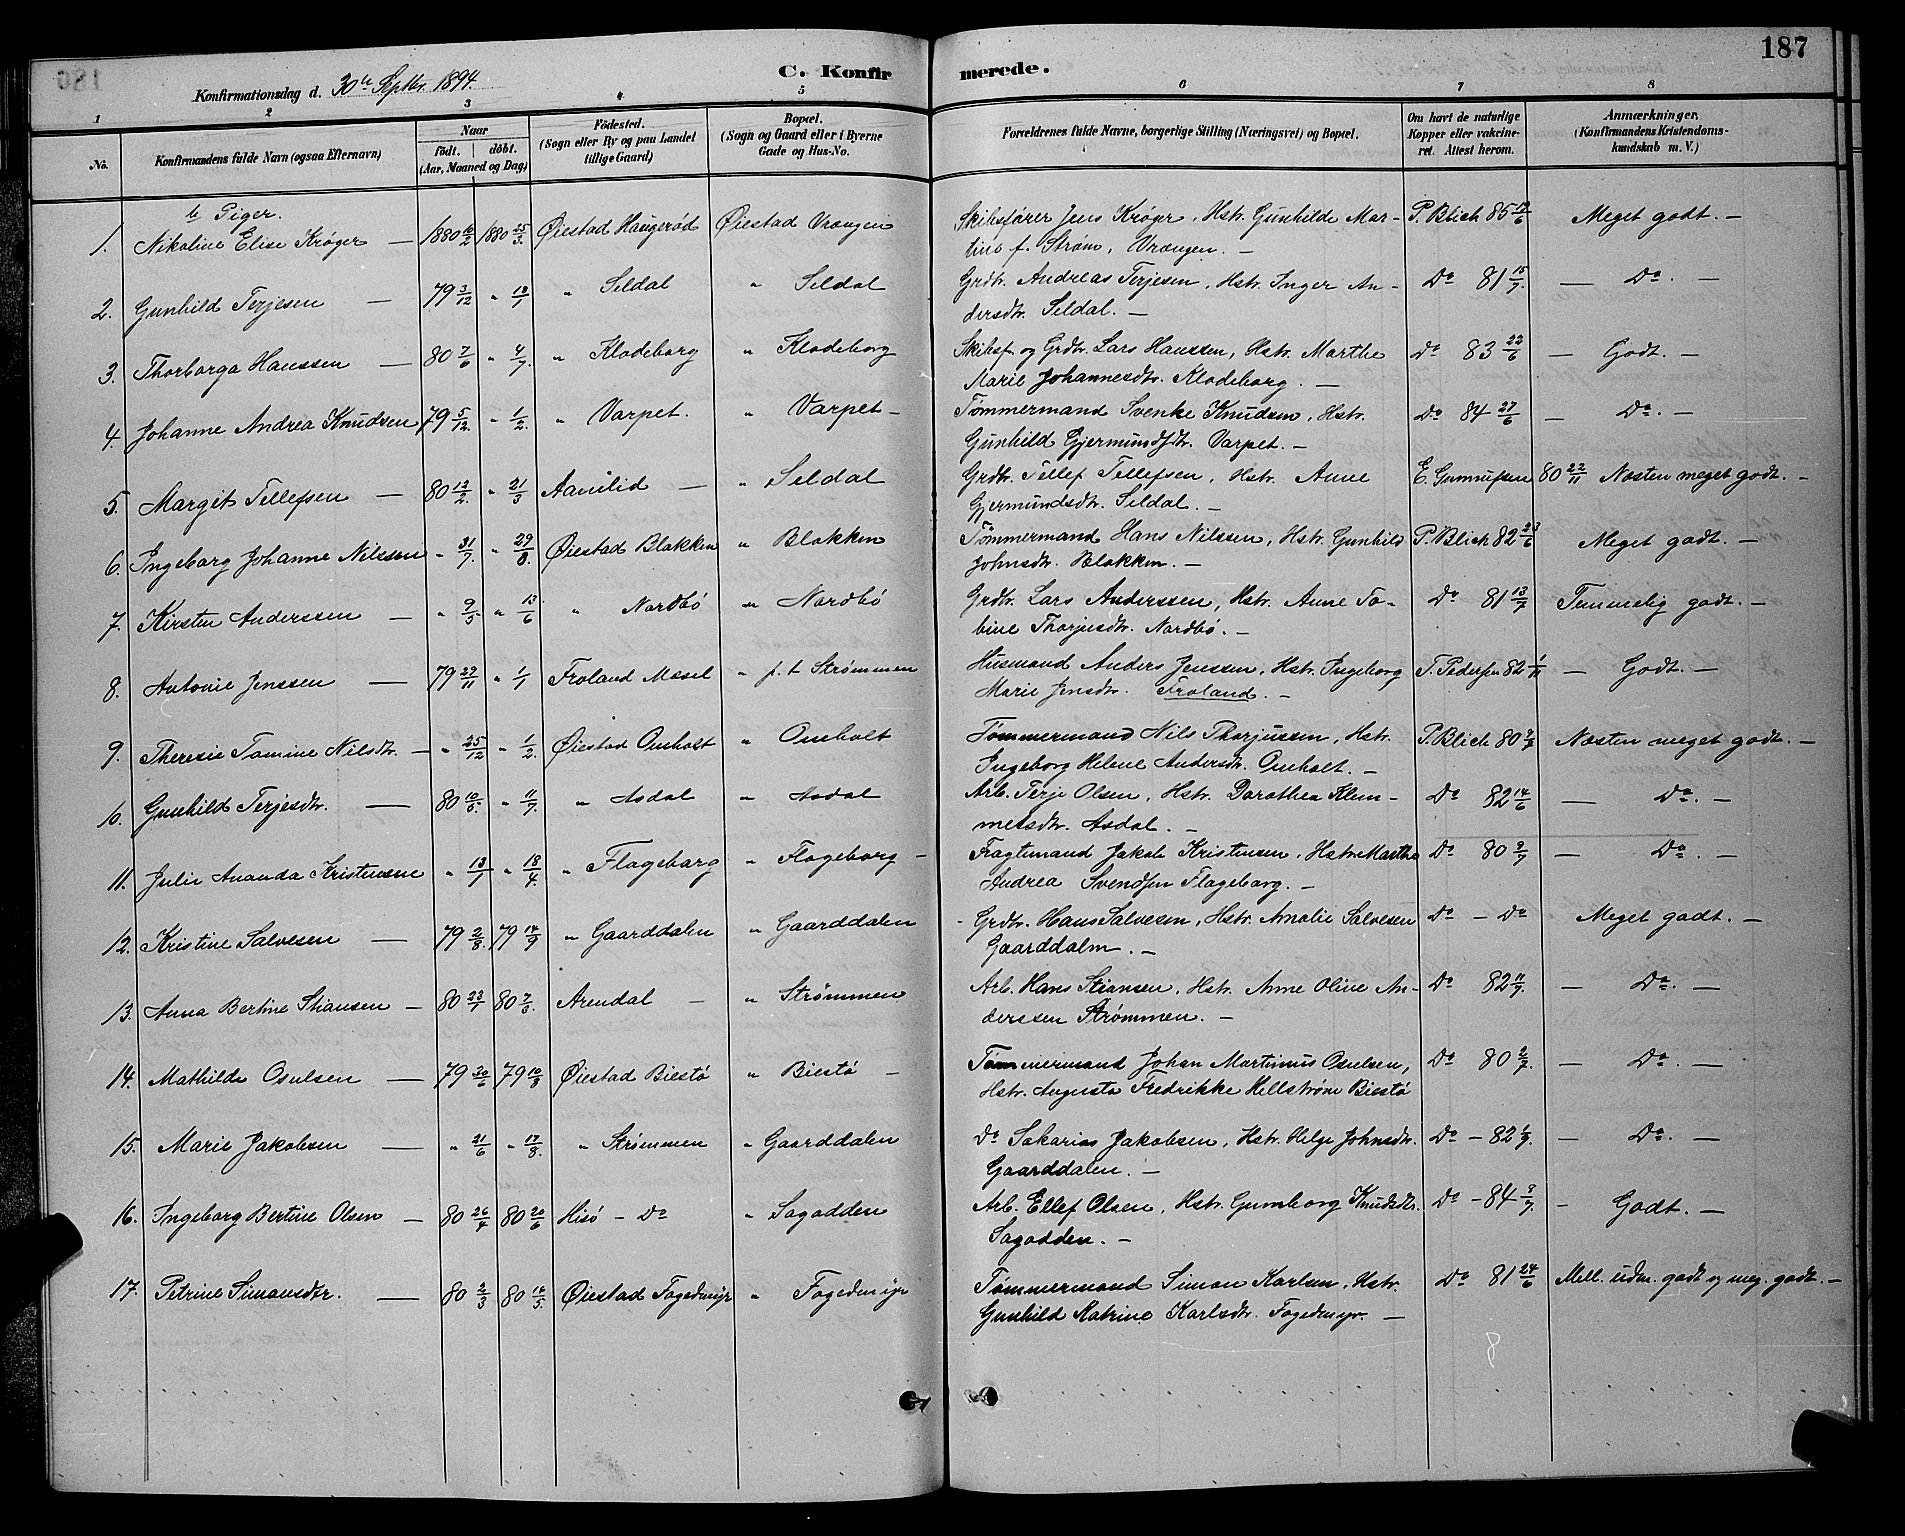 187
C. Konfirmerede.
Konfirmationsdag d. 30te Septbr. 1894.
1 2 3 4 5 6 7 8
No.
Konfirmandens fulde Navn (ogsaa Efternavn)
Naar
födt. döbt.
(Aar, Maaned og Dag)
Födested.
(Sogn eller By og paa Landet
tillige Gaard)
Bopæl.
(Sogn og Gaard eller i Byerne
Gade og Hus-No.
Forældrenes fulde Navne, borgerlige Stilling (Næringsvei) og Bopæl.
Om havt de naturlige
Kopper eller vakcine-
ret. Attest herom.
Anmærkninger,
(Konfirmandens Kristendoms-
kundskab m. V.)
b Piger.
1. Nikoline Elise Krøger — 1880 16/2 1880 25/3 Øiestad Haugerød Øiestad Vrængen Skibsfører Jens Krøger, Hstr. Gunhilde Mar- P. Blich 85 19/6 Meget godt. —
tine f. Strøm, Vrængen. —
2. Gunhild Terjesen — 79 3/12 " 18/1 " Seldal " Seldal Grdbr. Andreas Terjesen, Hstr. Inger An- Do 81 15/7. — Do. —
dersdtr. Seldal. —
3. Thorborga Hanssen — 80 7/6 " 4/7. " Klodeborg " Klodeborg Skibsf. og Grdbr. Lars Hanssen, Hstr. Marthe Do 83 22/6 — Godt. —
Marie Johannesdtr. Klodeborg. —
4. Johanne Andrea Knudsen 79 5/12. " 1/2. " Varpet. " Varpet — Tømmermand Svenke Knudsen, Hstr. Do 84 27/6 — Do. —
Gunhild Gjermundsdtr. Varpet. —
5. Margit Tellefsen — 80 12/2. " 21/3 Aamlid — " Seldal Grdbr. Tellef Tellefsen, Hstr. Anne E. Gunnufsen 80 22/11 Næsten meget godt. —
Gjermundsdtr. Seldal. —
6. Ingeborg Johanne Nilssen " 31/7. " 29/8. Øiestad Blakken " Blakken Tømmermand Hans Nilssen, Hstr. Gunhild P. Blich 82 23/6 Meget godt. —
Johnsdtr. Blakken. —
7. Kirsten Anderssen — " 9/5 " 13/6 " Nordbø " Nordbø Grdbr. Lars Anderssen, Hstr. Anne To- Do 81 13/7 Temmelig godt. —
bine Thorjusdtr. Nordbø. —
8. Antonie Jenssen — 79 29/11 " 1/1 Froland Mesel " p. t Strømmen Husmand Anders Jenssen, Hstr. Ingeborg T. Pedersen 82 1/11 — Godt. —
Marie Jensdtr. Froland. —
9. Theresie Tomine Nilsdtr. — " 25/12 " 1/2. Øiestad Omholt " Omholt Tømmermand Nils Thorjussen, Hstr. P. Blich 80 2/7 Næsten meget godt. —
Ingeborg Helene Andersdtr. Omholt. —
10. Gunhild Terjesdtr. — 80 10/5. " 11/7. " Asdal " Asdal Arb. Terje Olsen, Hstr. Dorothea Klem- Do 82 14/6 — Do. —
metsdtr. Asdal. —
11. Julie Amanda Kristensen " 13/1 " 18/4. " Flageborg " Flageborg — Fragtemand Jakob Kristensen, Hstr. Marthe Do 80 2/7 — Do. —
Andrea Svendsen Flageborg. —
12. Kristine Salvesen — 79 2/8. 79 14/9 " Gaarddalen " Gaarddalen Grdbr. Hans Salvesen, Hstr. Amalie Salvesen Do — Do Meget godt. —
Gaarddalen. —
13. Anna Bertine Stiansen — 80 23/1 80 7/3 Arendal — " Strømmen Arb. Hans Stiansen, Hstr. Anne Oline An- Do 82 11/7. — Do. —
derssen Strømmen. —
14. Mathilde Osulsen — 79 30/6 79 10/8 Øiestad Biestø " Biestø — Tømmermand Johan Martinius Osulsen, Do 80 2/7. — Do. —
Hstr. Augusta Fredrikke Hellstrøm Biestø
15. Marie Jakobsen — " 21/6 " 17/8. " Strømmen " Gaarddalen Do Sakarias Jakobsen, Hstr. Helge Johnsdtr. Do — 82 1/7. — Do. —
Gaarddalen. —
16. Ingeborg Bertine Olsen — 80 26/4 80 20/6 Hisö — Do " Sagodden Arb. Ellef Olsen, Hstr. Gumborg Knudsdtr. Do — 84 3/7. — Godt. —
Sagodden. —
17. Petrine Simonsdtr. — 80 2/3 80 16/5. Øiestad Fogedmyr " Fogedmyr Tømmermand Simon Karlsen, Hstr. Do 81 24/6 Mell. udm. godt og meg. godt. —
Gunhild Katrine Karlsdtr. Fogedmyr. —
8